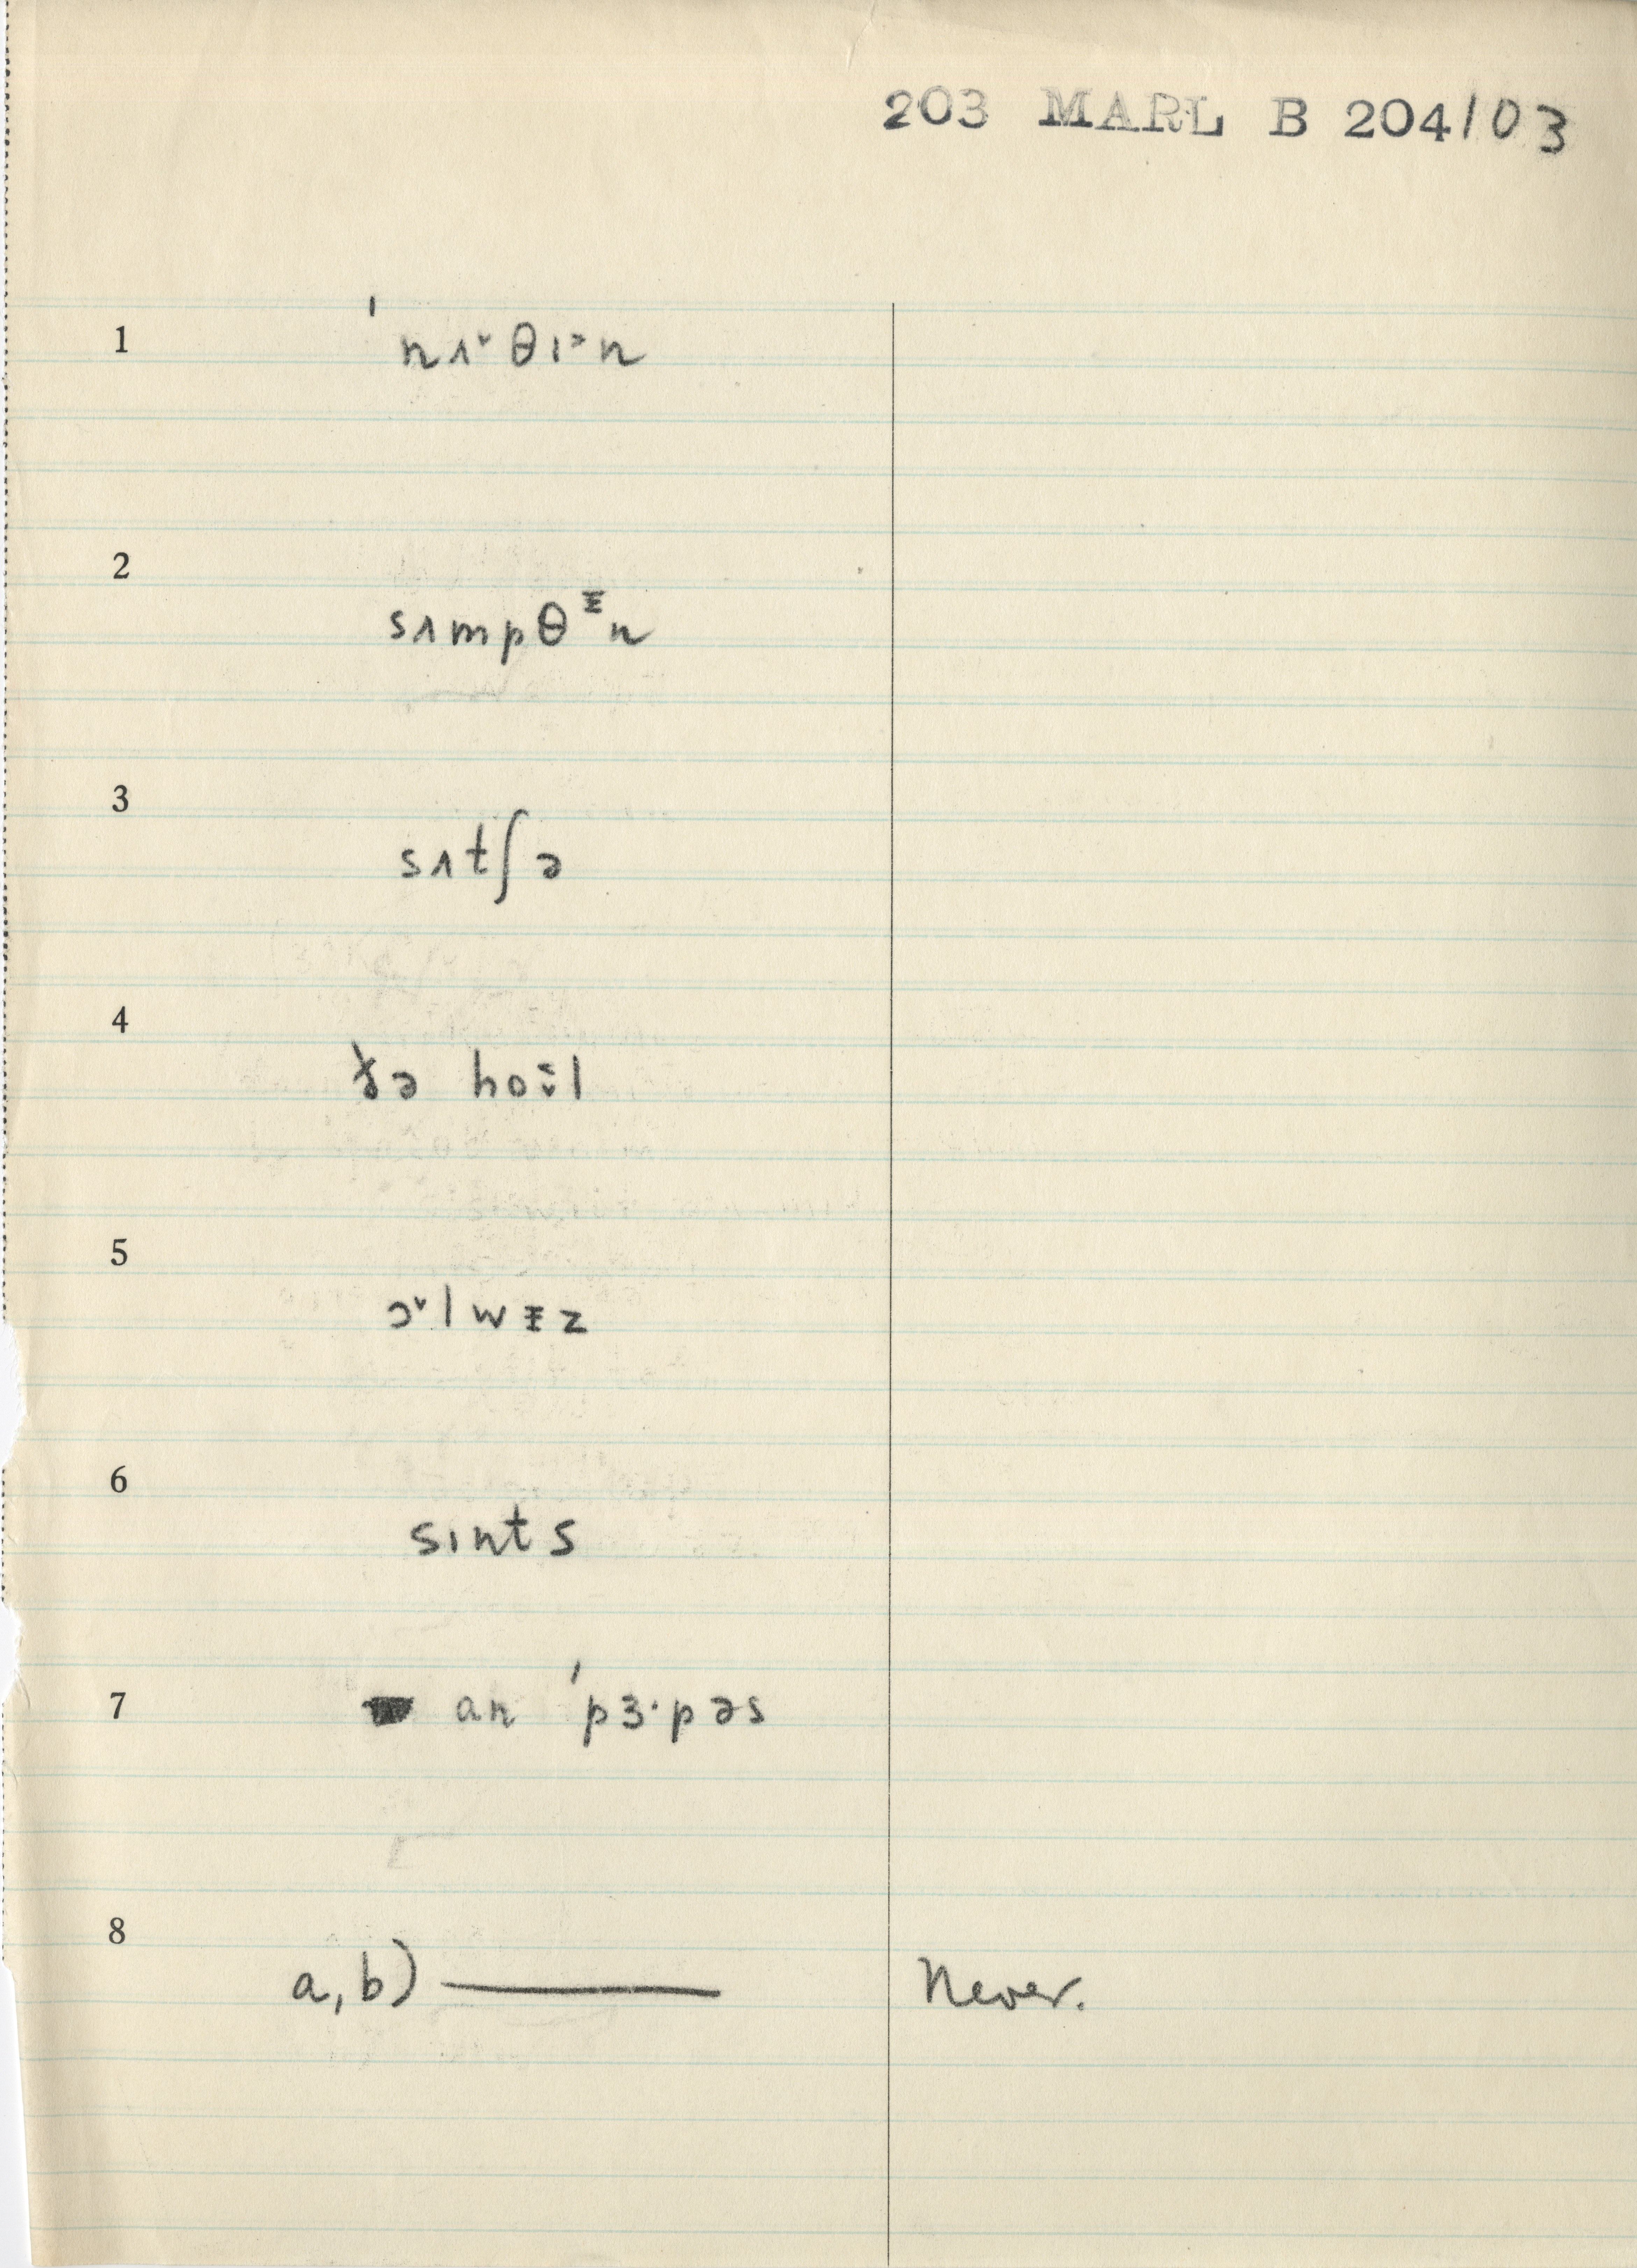 203 MARL B 204/03
1
ˈnʌ˅θɪ˃n
2
sʌmpθᵻn
3
sʌtʃə
4
ðə ho
5
ɔ˅lwᵻz
6
sɪnts
7
an ˈpɜ·pəs
8
a, b) ——— Never.